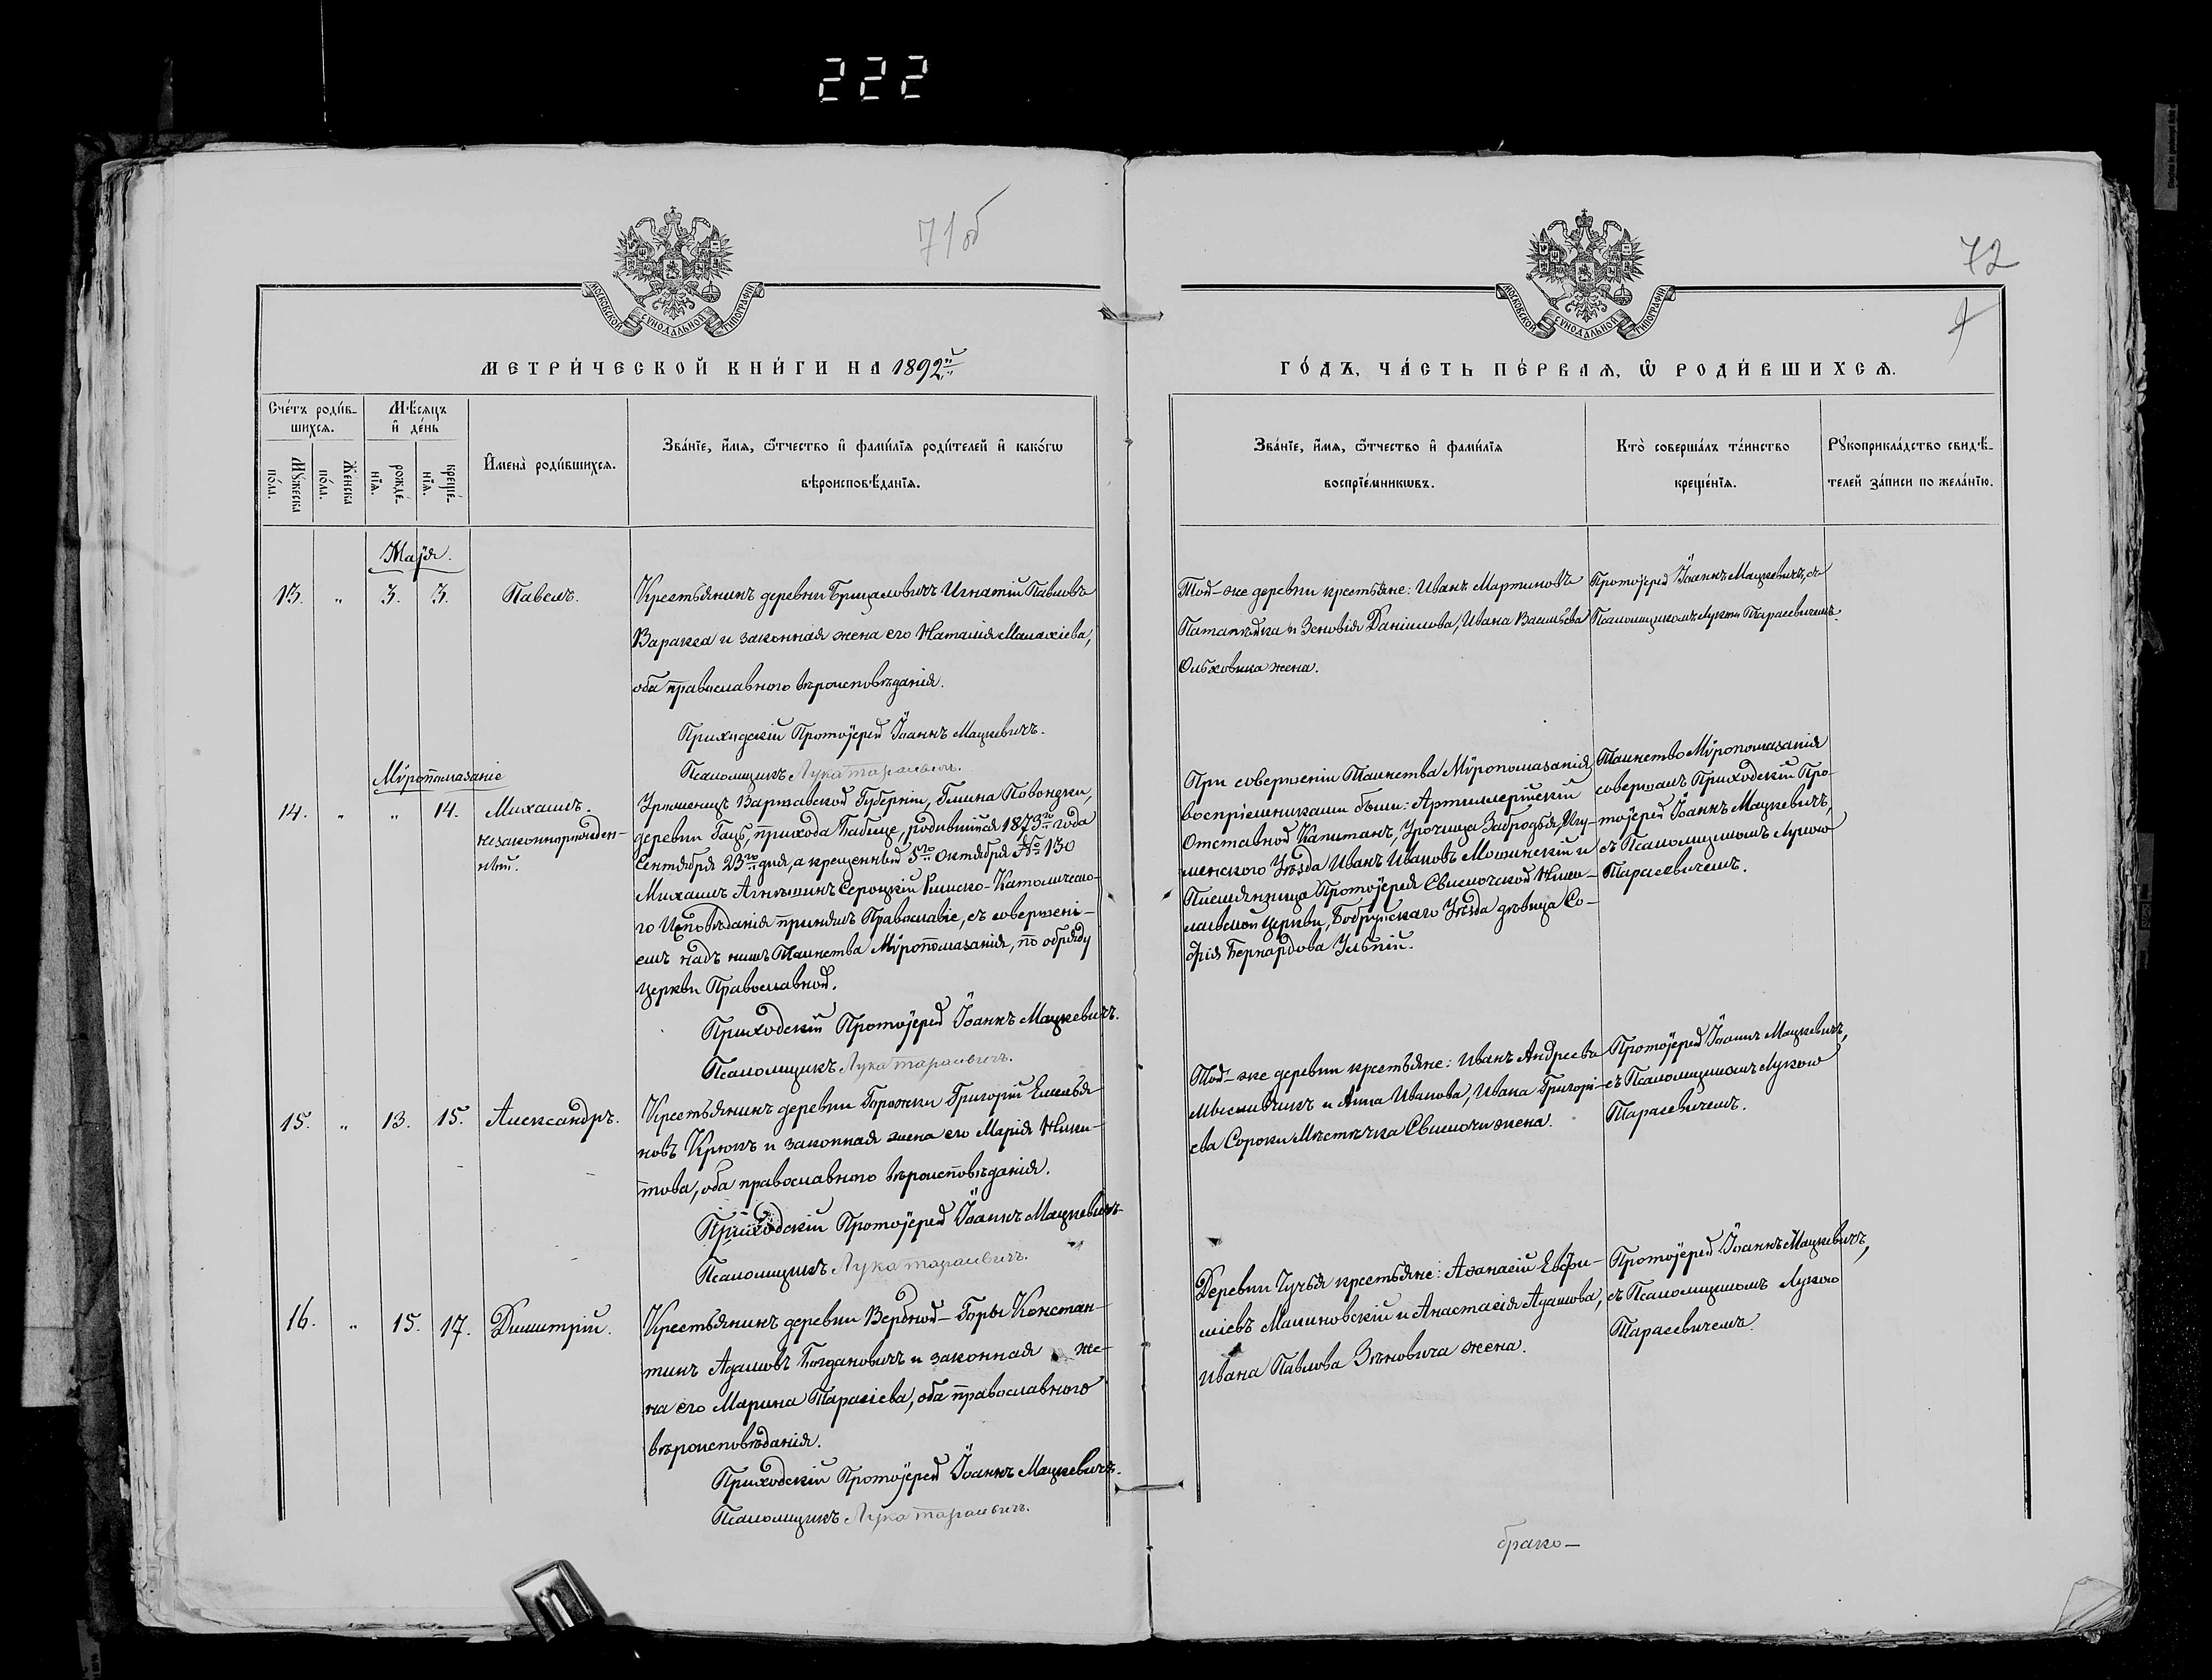 222
71об
72
МОСКОВСКОЙ СѴНОДАЛЬНОЙ ТИПОГРАФІИ
МОСКОВСКОЙ СѴНОДАЛЬНОЙ ТИПОГРАФІИ
МЕТРИ́ЧЕСКОЙ КНИ́ГИ НА 1892й
ГО́ДЪ, ЧА́СТЬ ПЕ́РВАЯ, Ѿ РОДИ́ВШИХСЯ.
Сче́тъ роди́в-
шихся.
Му́жеска
по́ла.
Же́нска
по́ла.
Мѣ́сяцъ
и де́нь
рожде́-
нїя.
креще́-
нїя.
Имена̀ роди́вшихся.
Зва́нїе, и́мя, ѻ́тчество и фами́лїя роди́телей и како́гѡ
вѣроисповѣ́данїя.
Зва́нїе, и́мя, ѻ́тчество и фами́лїя
воспрїе́мникѡвъ.
Кто̀ соверша́лъ та́инство
креще́нїя.
Рꙋкоприкла́дство свидѣ́-
телей за́писи по жела́нїю.
Маія.
13. " 3. 3. Павелъ.
Крестьянинъ деревни Брицаловичъ Игнатій Павловъ
Варакса и законная жена его Наталія Малахіева,
оба православнаго вѣроисповѣданія.
Приходскій Протоіерей Іоаннъ Мацкевичъ.
Псаломщикъ Лука Тарасевичъ.
Той-же деревни крестьяне: Иванъ Мартиновъ
и Зеновія Даніилова, Ивана Васильева
Ольховика жена.
Протоіерей Іоаннъ Мацкевичъ, съ
Псаломщикомъ Лукою Тарасевичемъ.
Мѵропомазаніе
14. " " 14. Михаилъ.
незаконнорожден-
ный.
Уроженецъ Варшавской Губерніи, Гмина Повондзки,
деревни Гацъ, прихода Бабице, родившійся 1873го года
Сентября 23го дня, а крещенный 5го Октября № 130
Михаилъ Серацкій Римско-Католическа-
го Исповѣданія принялъ Православіе, съ совершені-
емъ надъ нимъ Таинства Мѵропомазанія, по обряду
церкви Православной.
Приходскій Протоіерей Іоаннъ Мацкевичъ.
Псаломщикъ Лука Тарасевичъ.
При совершеніи Таинства Мѵропомазанія
воспріемниками были: Артиллерійскій
Отставной Капитанъ, Урочища Забродья, Игу-
менскаго Уѣзда Иванъ Ивановъ Мошинскій и
Племянница Протоіерея Свислочской Нико-
лаевской церкви, Бобруйскаго Уѣзда дѣвица Со-
фія Бернардова
Таинство Мѵропомазанія
совершалъ Приходскій Про-
тоіерей Іоаннъ Мацкевичъ,
съ Псаломщикомъ Лукою
Тарасевичемъ.
15. " 13. 15. Александръ.
Крестьянинъ деревни Горожки Григорій Емелья-
новъ Крюкъ и законная жена его Марія Ники-
това, оба православнаго вѣроисповѣданія.
Приходскій Протоіерей Іоаннъ Мацкевичъ
Псаломщикъ Лука Тарасевичъ.
Той-же деревни крестьяне: Иванъ Андреевъ
Мысливчикъ и Анна Иванова, Ивана Григорі-
ева Сороки Мѣстечка Свислочи жена.
Протоіерей Іоаннъ Мацкевичъ,
съ Псаломщикомъ Лукою
Тарасевичемъ.
16. " 15. 17. Димитрій.
Крестьянинъ деревни Вербной-Горы Констан-
тинъ Адамовъ Богдановичъ и законная же-
на его Марина Тарасіева, оба православнаго
вѣроисповѣданія.
Приходскій Протоіерей Іоаннъ Мацкевичъ.
Псаломщикъ Лука Тарасевичъ.
Деревни Чучья крестьяне: Аѳанасій Евфи-
міевъ Малиновскій и Анастасія Адамова,
Ивана Павлова Зѣновича жена.
Протоіерей Іоаннъ Мацкевичъ,
съ Псаломщикомъ Лукою
Тарасевичемъ.
брако-